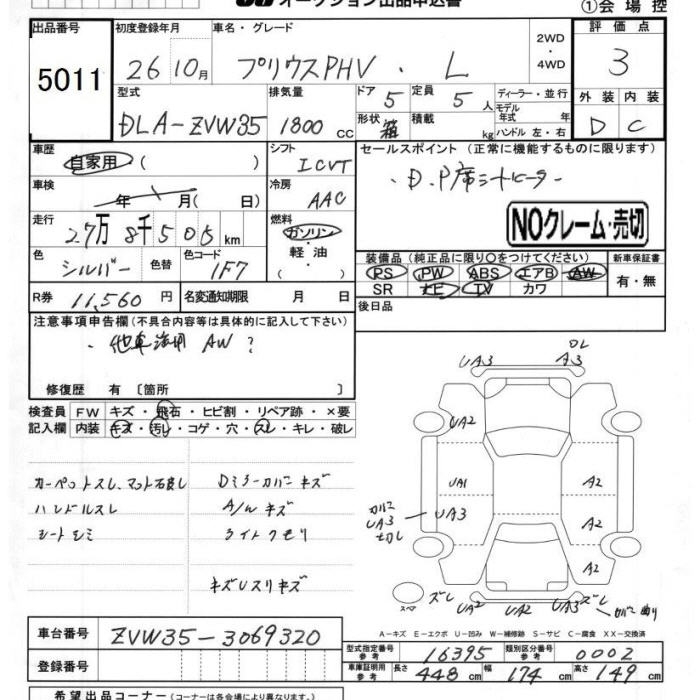 オークション出品申込書
①会場控
出品番号 初度登録年月 車名・グレード 2WD・4WD 評価点
5011 26 10月 プリウスPHV・L 3
型式 排気量 ドア 定員 ディーラー・並行 外装 内装
DLA-ZVW35 1800cc 5 5人 モデル年式 年 D C
形状 箱 積載 kg ハンドル 左・右
車歴 自家用 ( ) シフト ICVT セールスポイント (正常に機能するものに限ります)
・D.P席シートヒーター
車検 年 月( 日) 冷房 AAC
NOクレーム・売切
走行 27万8千505km 燃料 ガソリン・軽油 ( )
色 シルバー 色替 色コード 1F7
装備品 (純正品に限り○をつけてください) 新車保証書
PS PW ABS エアB AW 有・無
SR ナビ TV カワ
R券 11,560円 名変通知期限 月 日 後日品
注意事項申告欄 (不具合内容等は具体的に記入して下さい)
・他車流用 AW ?
修復歴 有 〔箇所 〕
検査員 FW キズ・飛石・ヒビ割・リペア跡・×要
記入欄 内装 キズ・汚レ・コゲ・穴・スレ・キレ・破レ
カーペットスレ、マット右良し Dミラーカバーキズ
ハンドルスレ A/Wキズ
シートシミ ライトクモリ
キズしスリキズ
UA3 A3 OL
UA2
UA1 A2
カバー UA3 切れ UA3 A2
A2
スペア ズレ UA2 UA2 UA3 ズレ カバー曲り
A-キズ E-エクボ U-凹み W-補修跡 S-サビ C-腐食 XX-交換済
車台番号 ZVW35-3069320
登録番号
型式指定番号 参考 16395 類別区分番号 参考 0002
車庫証明用 参考 長さ 448cm 幅 174cm 高さ 149cm
希望出品コーナー (コーナーは各会場により異なります)